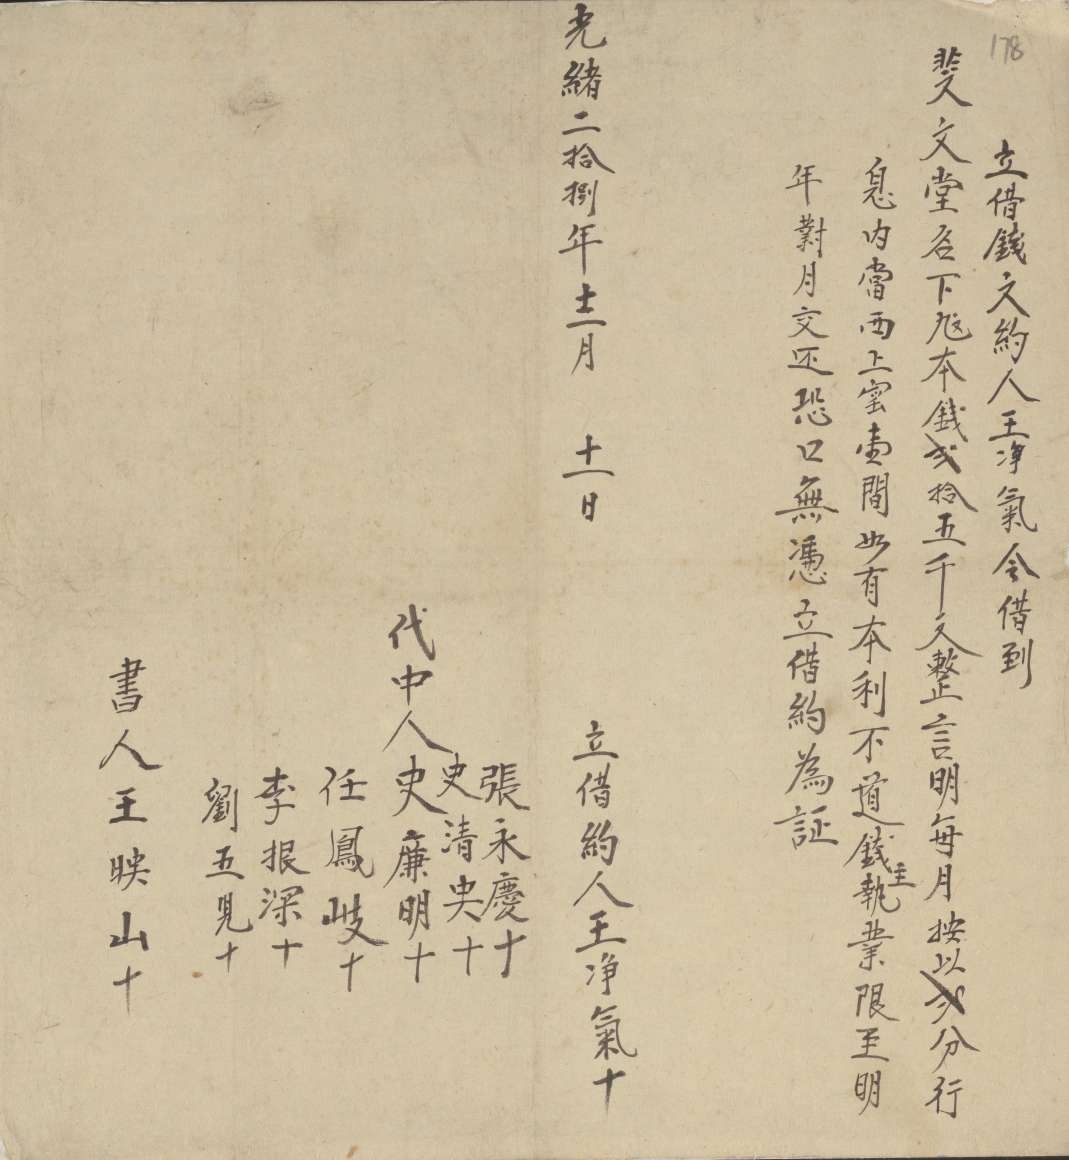 178
立借錢文約人王净氣今借到
斐文堂名下尅本錢弍拾五千文整言明每月按以弍分行
息内當西上窑壹間如有本利不道錢主執業限至明
年對月交还恐口無憑立借約為証
光緒二拾捌年十二月 十一日
立借約人王净氣十
張永慶十
史清奥十
代中人史廉明十
任鳳岐十
李根深十
劉五見十
書人王映山十